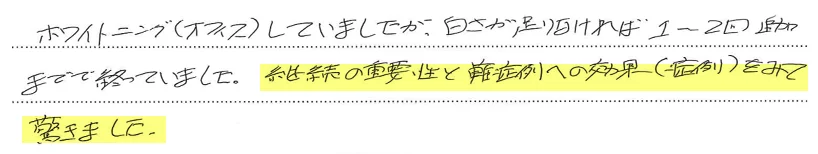 ホワイトニング(オフィス)していましたが、白さが足りなければ1〜2回追加
までで終っていました。継続の重要性と難症例への効果(症例)をみて
驚きました。